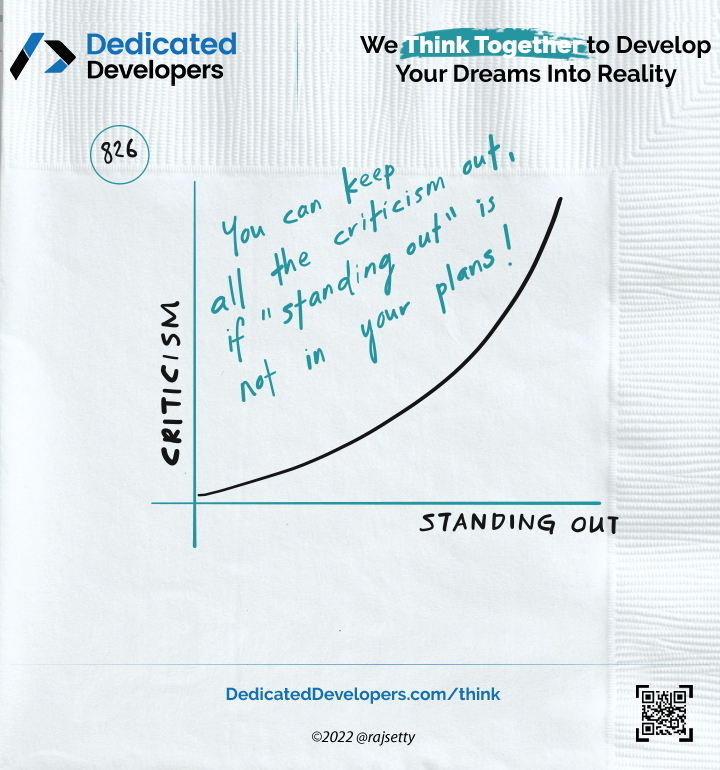 Dedicated
Developers
We Think Together to Develop
Your Dreams Into Reality
826
You can keep
all the criticism out,
if "standing out" is
not in your plans!
CRITICISM
STANDING OUT
DedicatedDevelopers.com/think
©2022 @rajsetty